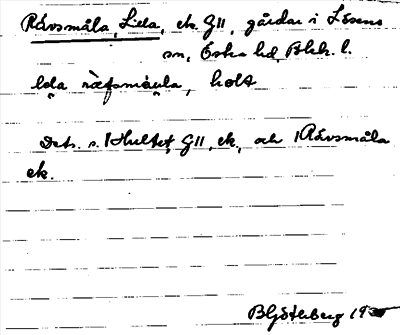 Rävsmåla, Lilla, ek. G11, gårdar i Lösens
sn, Östra hd, Blek. l.
lɩla ræfsmåula, holt
Dets. s. 1 Hultet G11, ek., och 1 Rävsmåla
ek.
B Göterberg 19